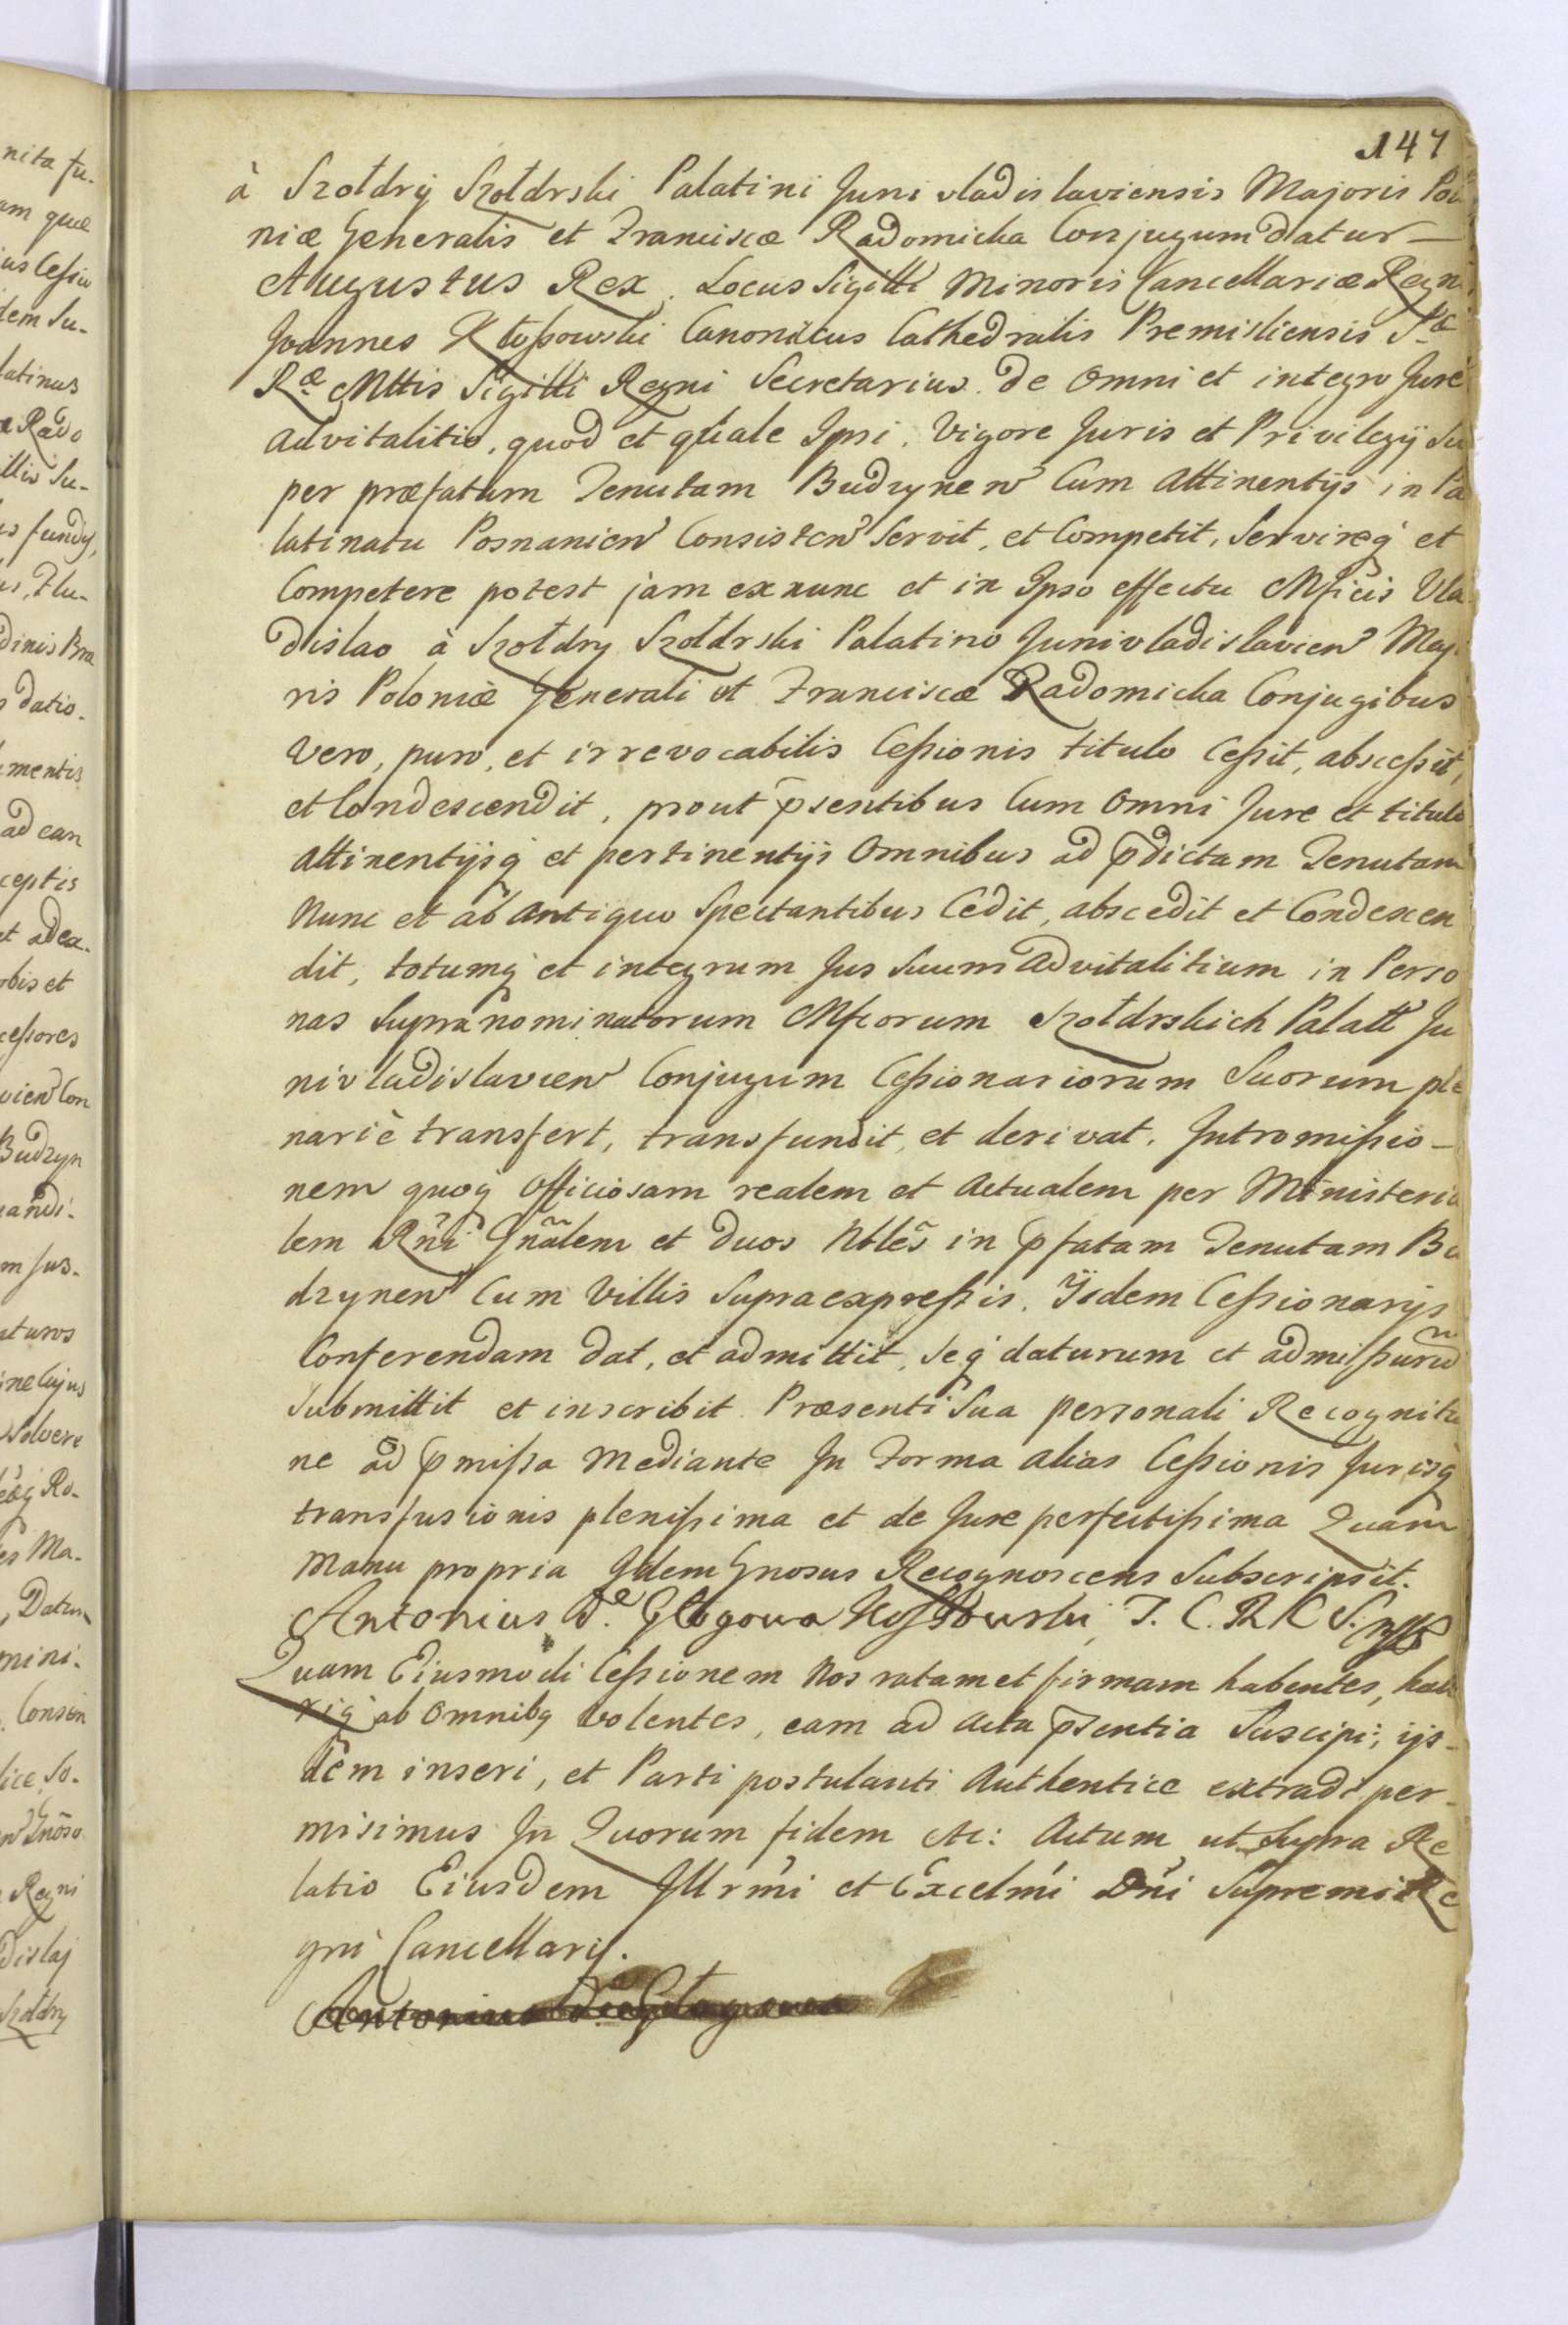 147
à Szołdry Szołdrski Palatini Junivladislaviensis Majoris Polo
niæ Generalis et Franciscæ Radomicka Conjugum datur —
Augustus Rex. Locus Sigilli Minoris Cancellariæ Regni
Joannes Kłopowski Canonicus Cathedralis Premisliensis Sæ
Ræ Mttis Sigilli Regni Secretarius. de Omni et integro Jure
advitalitio, quod et quale Ipsi. Vigore Juris et Privilegij Su
per præfatam Tenutam Budzynen Cum Attinentijs in Pa
latinatu Posnanien Consisten Servit, et Competit, Servireq et
Competere potest jam ex nunc et in Ipso effectu Mficis Vla
dislao à Szołdry Szołdrski Palatino Junivladislavien Majo
ris Poloniæ Generali et Franciscæ Radomicka Conjugibus
vero, puro, et irrevocabilis Cessionis titulo Cessit, abscessit,
et Condescendit, prout p̄sentibus Cum Omni Jure et titulo
attinentijsq et pertinentijs Omnibus ad p̄dictam Tenutam
Nunc et ab Antiquo Spectantibus Cedit, abscedit et Condescen
dit, totumq et integrum Jus Suum Advitalitium in Perso
nas Supranominatorum Mfcorum Szołdrskich Palatt Ju
nivladislavien Conjugum Cessionariorum Suorum ple
nariè transfert, transfundit, et derivat. Intromissio-
nem quoq Officiosam realem et Actualem per Ministeria
lem Rñi Gñalem et duos Nbles in p̄fatam Tenutam Bu
dzynen Cum Villis Supraexpressis. Ijsdem Cessionarijs
Conferendam dat, et admittit, seq daturum et admissurũ
Submittit et inscribit Præsenti Sua personali Recognitio
ne ad p̄missa Mediante In Forma alias Cessionis Jurisq
transfusionis plenissima et de Jure perfectissima Quam
Manu propria Idem Gnosus Recognoscens Subscripsit.
Antonius de Głogowa Kossowski, T. C. R K S. mpp
Quam Eiusmodi Cessionem Nos ratam et firmam habentes, habe
riq ab Omnibq Volentes, eam ad Acta p̄sentia Suscipi; ijs-
dem inseri, et Parti postulanti Authentice extradi per-
misimus In Quorum fidem etc: Actum ut Supra Re
latio Eiusdem Illrmi et Excelmi Dñi Supremi Re
gni Cancellarij.
Antonius de Głogowa